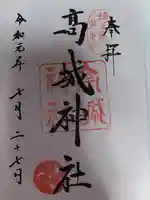 奉拝
高城神社
令和元年 七月 二十七日